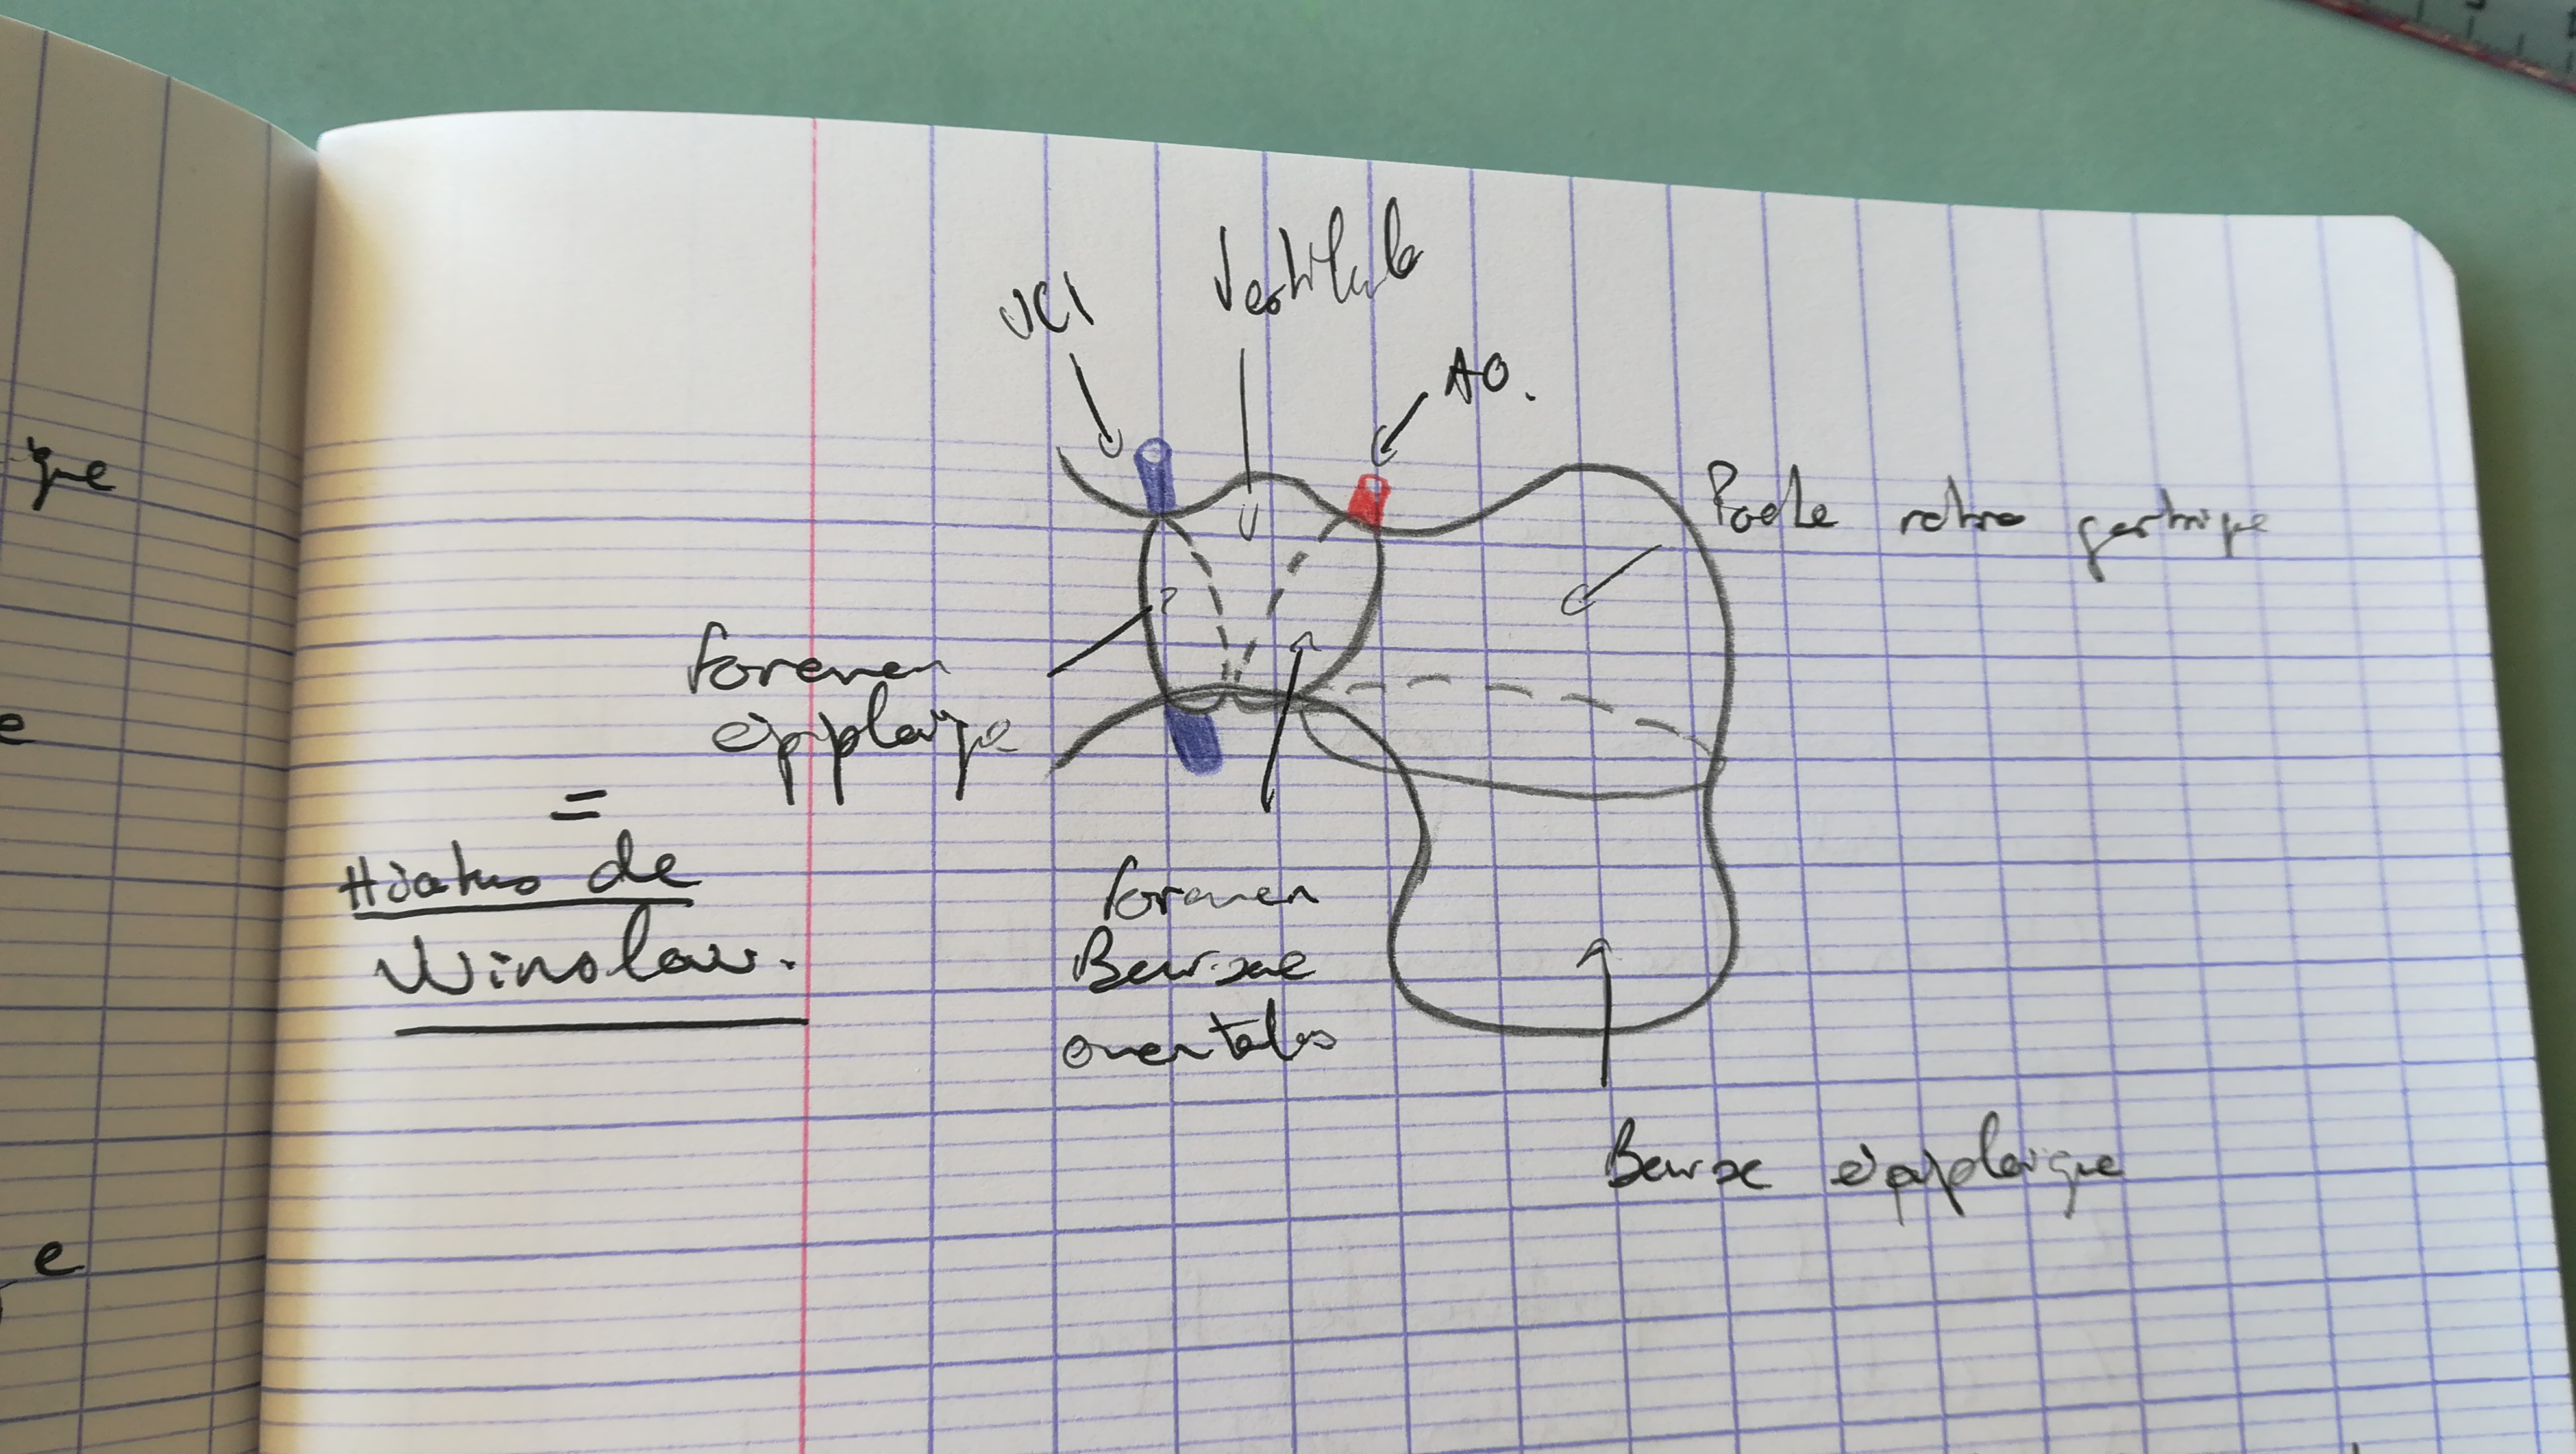 que
e
e
VCI
Vestibule
AO.
Poche retro gastrique
foramen
épiploïque
=
Hiatus de
Winslow.
foramen
Bursae
omentales
Bourse épiploïque